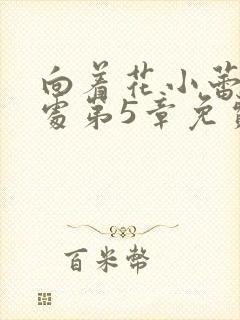 向着花小蕾
处第5章免费
百米币